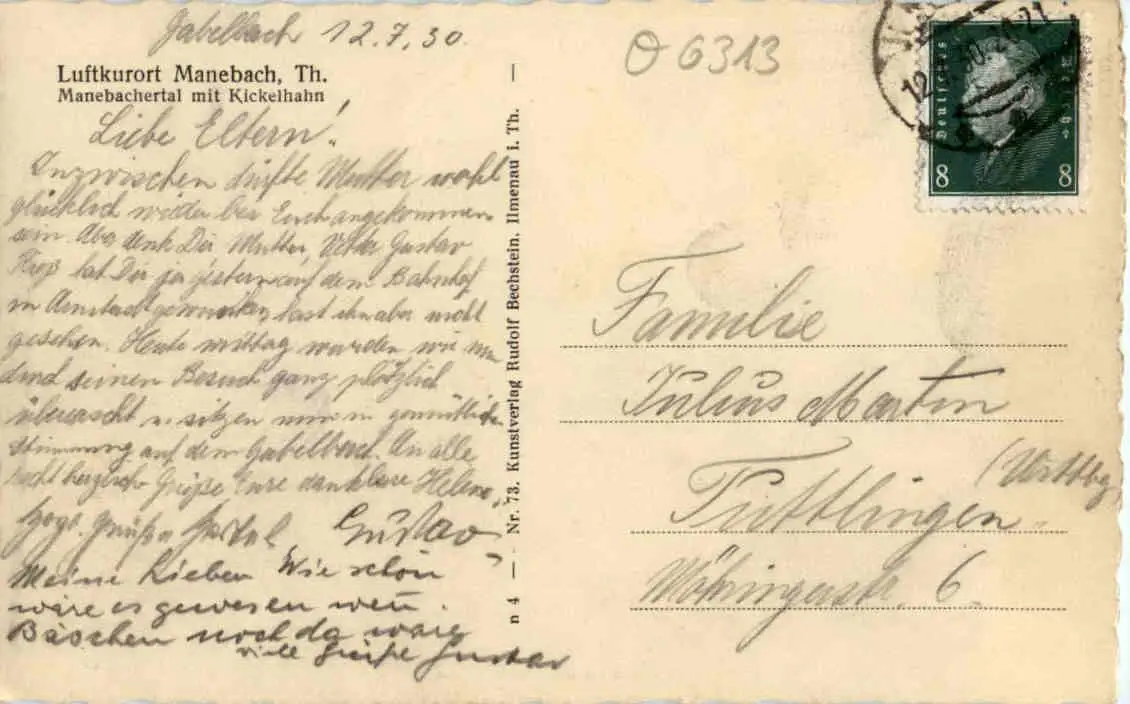 Gabelbach 12.7.30.
Θ 6313
Luftkurort Manebach, Th.
Manebachertal mit Kickelhahn
Liebe Eltern!
Inzwischen dürfte Mutter wohl
glücklich wieder bei Euch angekommen
sein. Aber denk Dir Mutter, Vetter Gustav
hat Dir ja gestern auf dem Bahnhof
in Arnstadt gewunken, hast ihn aber nicht
gesehen. Heute mittag wurden wir nun
durch seinen Besuch ganz plötzlich
überrascht u. sitzen nun in gemütlicher
Stimmung auf dem Gabelbach. An alle
recht herzliche Grüße Eure dankbare Helene,
Grüße Gustav
Meine Lieben Wie schön
wäre es gewesen wen
Bäschen noch da wäre
viele Grüße Gustav
n 4 — Nr. 73. Kunstverlag Rudolf Bechstein, Ilmenau i. Th.
12. 30. 20-21
Deutsches
8 8
Familie
Julius Martin
Tuttlingen (Württbg.)
Möhringerstr. 6